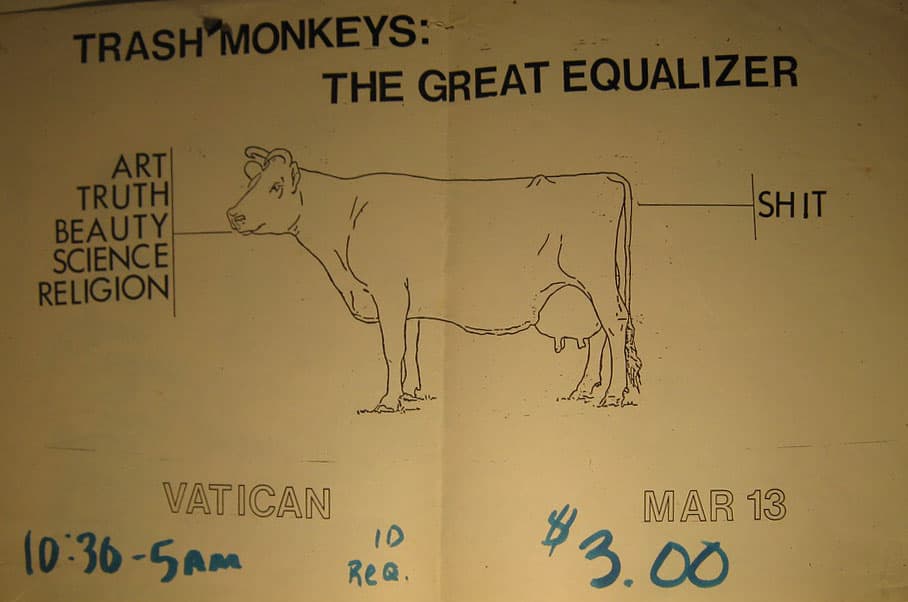 TRASH MONKEYS:
THE GREAT EQUALIZER
ART
TRUTH
BEAUTY
SCIENCE
RELIGION
SHIT
VATICAN
MAR 13
10:30-5AM
ID
REQ.
$3.00